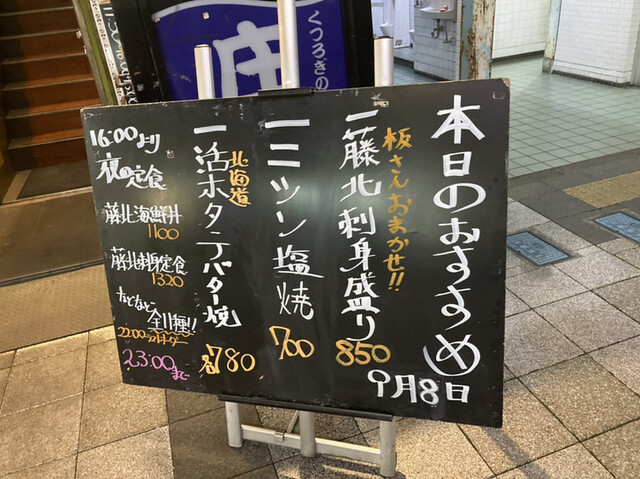 くつろぎの
本日のおすすめ
9月8日
板さんおまかせ!!
一藤北刺身盛り
850
一ミツン塩焼
700
北海道
一活ホタテバター焼
各780
16:00より
夜の定食
藤北海鮮丼
1100
藤北刺身定食
1320
などなど
全川種!!
22:00ラストオーダー
23:00まで